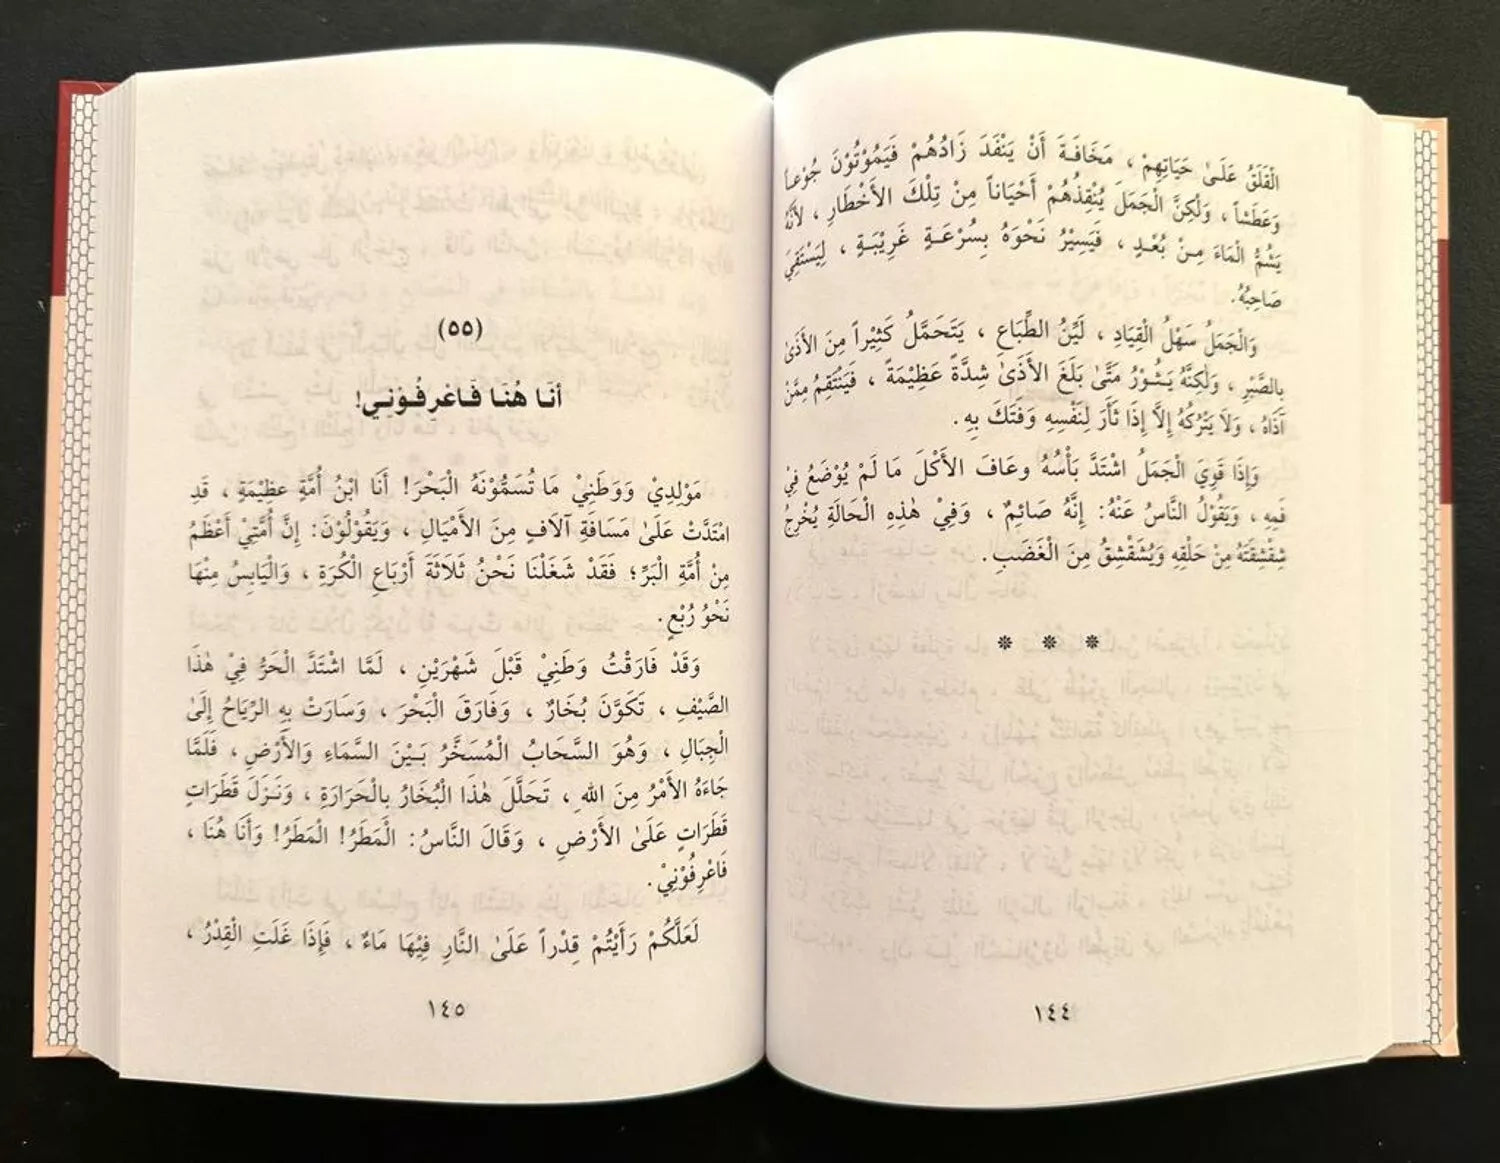 الْقَلَقُ عَلَىٰ حَيَاتِهِمْ ، مَخَافَةَ أَنْ يَنْفَدَ زَادُهُمْ فَيَمُوْتُوْنَ جُوْعاً
وَعَطَشاً ، وَلٰكِنَّ الْجَمَلَ يُنْقِذُهُمْ أَحْيَاناً مِنْ تِلْكَ الأَخْطَارِ ، لأَنَّهُ
يَشُمُّ الْمَاءَ مِنْ بُعْدٍ ، فَيَسِيْرُ نَحْوَهُ بِسُرْعَةٍ غَرِيْبَةٍ ، لِيَسْتَقِيَ
صَاحِبُهُ.
وَالْجَمَلُ سَهْلُ الْقِيَادِ ، لَيِّنُ الطِّبَاعِ ، يَتَحَمَّلُ كَثِيْراً مِنَ الأَذَىٰ
بِالصَّبْرِ ، وَلٰكِنَّهُ يَثُوْرُ مَتَىٰ بَلَغَ الأَذَىٰ شِدَّةً عَظِيْمَةً ، فَيَنْتَقِمُ مِمَّنْ
آذَاهُ ، وَلاَ يَتْرُكُهُ إِلاَّ إِذَا ثَأَرَ لِنَفْسِهِ وَفَتَكَ بِهِ .
وَإِذَا قَوِيَ الْجَمَلُ اشْتَدَّ بَأْسُهُ وعَافَ الأَكْلَ مَا لَمْ يُوْضَعْ فِيْ
فَمِهِ ، وَيَقُوْلُ النَّاسُ عَنْهُ: إِنَّهُ صَائِمٌ ، وَفِيْ هٰذِهِ الْحَالَةِ يُخْرِجُ
شِقْشِقَتَهُ مِنْ حَلْقِهِ وَيُشَقْشِقُ مِنَ الْغَضَبِ .
* * *
١٤٤
(٥٥)
أَنَا هُنَا فَاعْرِفُوْنِي!
مَوْلِدِيْ وَوَطَنِيْ مَا تُسَمُّوْنَهُ الْبَحْرَ! أَنَا ابْنُ أُمَّةٍ عظِيْمَةٍ ، قَدِ
امْتَدَّتْ عَلَىٰ مَسَافَةِ آلاَفٍ مِنَ الأَمْيَالِ ، وَيَقُوْلُوْنَ: إِنَّ أُمَّتِيْ أَعْظَمُ
مِنْ أُمَّةِ الْبَرِّ؛ فَقَدْ شَغَلْنَا نَحْنُ ثَلاَثَةَ أَرْبَاعِ الْكُرَةِ ، وَالْيَابِسُ مِنْهَا
نَحْوُ رُبْعٍ.
وَقَدْ فَارَقْتُ وَطَنِيْ قَبْلَ شَهْرَيْنِ ، لَمَّا اشْتَدَّ الْحَرُّ فِيْ هٰذَا
الصَّيْفِ ، تَكَوَّنَ بُخَارٌ ، وَفَارَقَ الْبَحْرَ ، وَسَارَتْ بِهِ الرِّيَاحُ إِلَىٰ
الْجِبَالِ ، وَهُوَ السَّحَابُ الْمُسَخَّرُ بَيْنَ السَّمَاءِ وَالأَرْضِ ، فَلَمَّا
جَاءَهُ الأَمْرُ مِنَ اللهِ ، تَحَلَّلَ هٰذَا الْبُخَارُ بِالْحَرَارَةِ ، وَنَزَلَ قَطَرَاتٍ
قَطَرَاتٍ عَلَىٰ الأَرْضِ ، وَقَالَ النَّاسُ: الْمَطَرُ! الْمَطَرُ! وَأَنَا هُنَا ،
فَاعْرِفُوْنِيْ .
لَعَلَّكُمْ رَأَيْتُمْ قِدْراً عَلَىٰ النَّارِ فِيْهَا مَاءٌ ، فَإِذَا غَلَتِ الْقِدْرُ ،
١٤٥